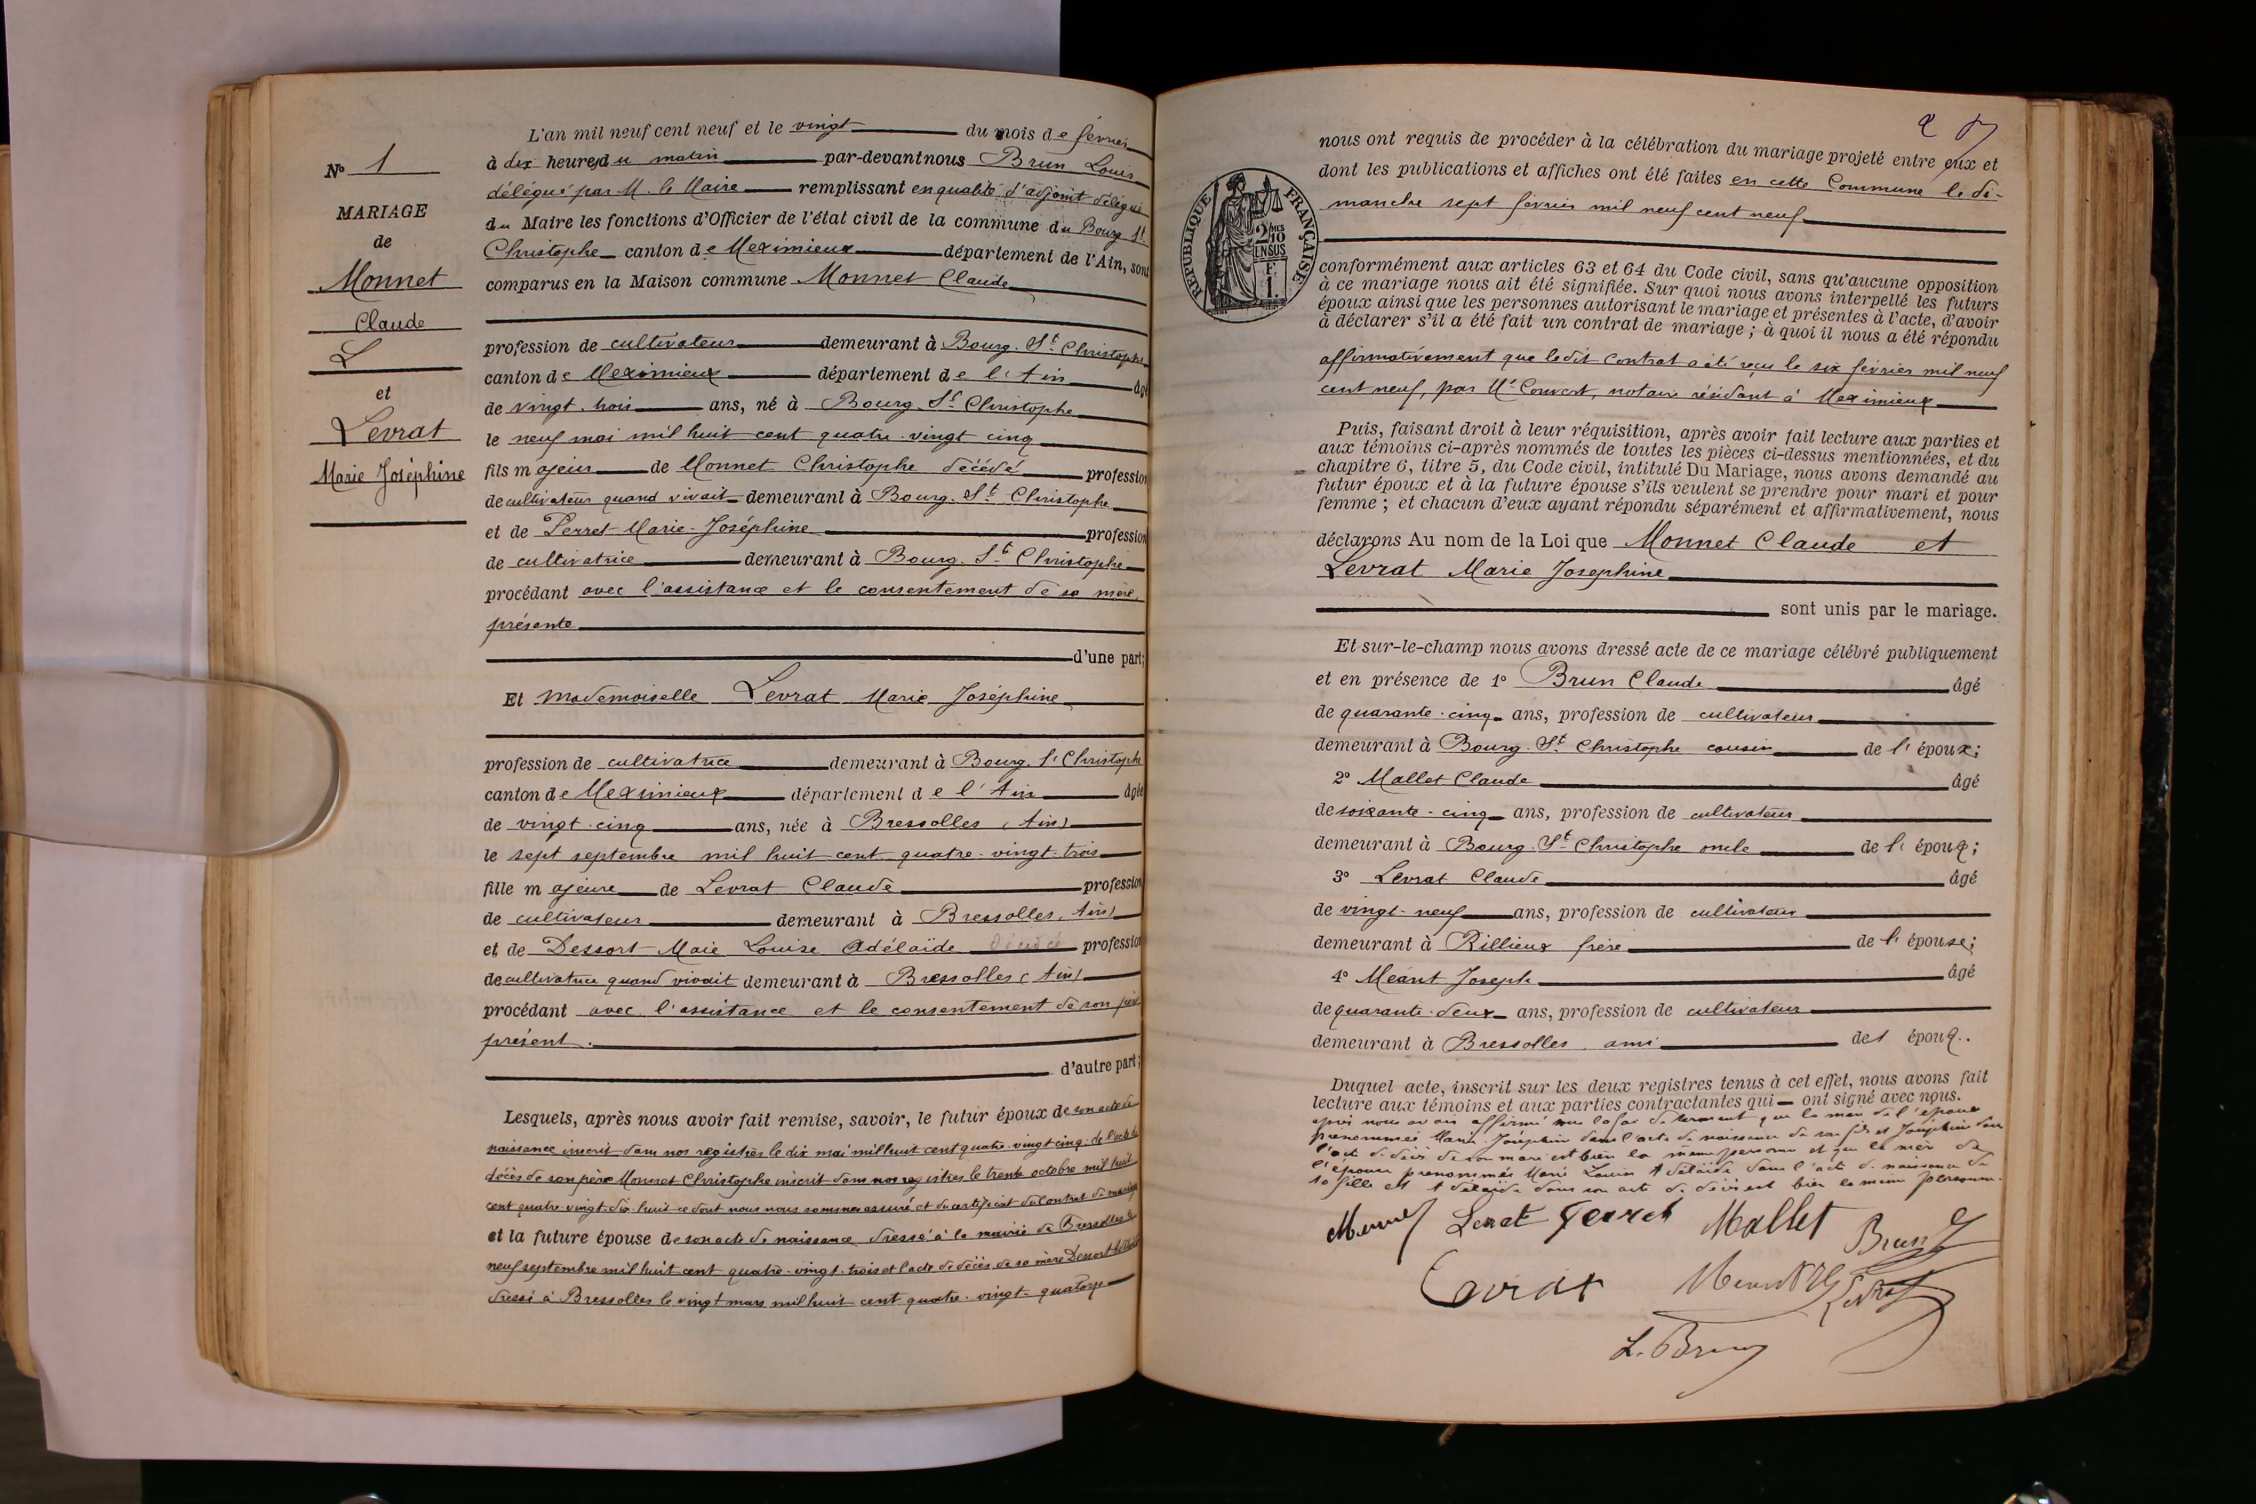 N° 1
MARIAGE
de
Monnet
Claude
et
Levrat
Marie Joséphine
L'an mil neuf cent neuf et le vingt du mois de février
à dix heures du matin par-devant nous Brun Louis
délégué par M. le Maire remplissant en qualité d'adjoint délégué
du Maire les fonctions d'Officier de l'état civil de la commune du Bourg St
Christophe canton de Meximieux département de l'Ain, sont
comparus en la Maison commune Monnet Claude
profession de cultivateur demeurant à Bourg. St Christophe
canton de Meximieux département de l'Ain âgé
de vingt-trois ans, né à Bourg St Christophe
le neuf mai mil huit cent quatre-vingt cinq
fils majeur de Monnet Christophe décédé profession
de cultivateur quand vivait demeurant à Bourg. St Christophe
et de Perret Marie-Joséphine profession
de cultivatrice demeurant à Bourg. St Christophe
procédant avec l'assistance et le consentement de sa mère
présente
d'une part;
Et Mademoiselle Levrat Marie Joséphine
profession de cultivatrice demeurant à Bourg. St Christophe
canton de Meximieux département de l'Ain âgée
de vingt-cinq ans, née à Bressolles (Ain)
le sept septembre mil huit cent quatre-vingt-trois
fille majeure de Levrat Claude profession
de cultivateur demeurant à Bressolles (Ain)
et de Dessort Marie Louise Adélaïde décédée profession
de cultivatrice quand vivait demeurant à Bressolles (Ain)
procédant avec l'assistance et le consentement de son père
présent.
d'autre part;
Lesquels, après nous avoir fait remise, savoir, le futur époux de son acte de
naissance inscrit dans nos registres le dix mai mil huit cent quatre-vingt-cinq; de l'acte de
décès de son père Monnet Christophe inscrit dans nos registres le trente octobre mil huit
cent quatre-vingt-dix-huit ce dont nous nous sommes assuré et du certificat du contrat de mariage
et la future épouse de son acte de naissance dressé à la mairie de Bressolles le
neuf septembre mil huit cent quatre-vingt-trois et l'acte de décès de sa mère Dessort
dressé à Bressolles le vingt mars mil huit cent quatre-vingt-quatorze
2
RÉPUBLIQUE FRANÇAISE
2/10 EN SUS
1 F.
nous ont requis de procéder à la célébration du mariage projeté entre eux et
dont les publications et affiches ont été faites en cette Commune le di-
manche sept février mil neuf cent neuf
conformément aux articles 63 et 64 du Code civil, sans qu'aucune opposition
à ce mariage nous ait été signifiée. Sur quoi nous avons interpellé les futurs
époux ainsi que les personnes autorisant le mariage et présentes à l'acte, d'avoir
à déclarer s'il a été fait un contrat de mariage; à quoi il nous a été répondu
affirmativement que ledit contrat a été reçu le six février mil neuf
cent neuf, par Me Convert, notaire résidant à Meximieux
Puis, faisant droit à leur réquisition, après avoir fait lecture aux parties et
aux témoins ci-après nommés de toutes les pièces ci-dessus mentionnées, et du
chapitre 6, titre 5, du Code civil, intitulé Du Mariage, nous avons demandé au
futur époux et à la future épouse s'ils veulent se prendre pour mari et pour
femme; et chacun d'eux ayant répondu séparément et affirmativement, nous
déclarons Au nom de la Loi que Monnet Claude et
Levrat Marie Josephine
sont unis par le mariage.
Et sur-le-champ nous avons dressé acte de ce mariage célébré publiquement
et en présence de 1° Brun Claude âgé
de quarante-cinq ans, profession de cultivateur
demeurant à Bourg. St Christophe cousin de l'époux;
2° Mallet Claude âgé
de soixante-cinq ans, profession de cultivateur
demeurant à Bourg. St Christophe oncle de l'époux;
3° Levrat Claude âgé
de vingt-neuf ans, profession de cultivateur
demeurant à Rillieux frère de l'épouse;
4° Méant Joseph âgé
de quarante-deux ans, profession de cultivateur
demeurant à Bressolles ami de l époux.
Duquel acte, inscrit sur les deux registres tenus à cet effet, nous avons fait
lecture aux témoins et aux parties contractantes qui ont signé avec nous.
après nous avoir affirmé sous la foi du serment que la mère de l'époux
prénommée Marie-Joséphine dans l'acte de naissance de son fils et Joséphine dans
l'acte de décès de son mari est bien la même personne et que la mère de
l'épouse prénommée Marie Louise Adélaïde dans l'acte de naissance de
sa fille et Adélaïde dans son acte de décès est bien la même personne.
Monnet Levrat Perret Mallet Brun
Levrat Levrat
L. Brun